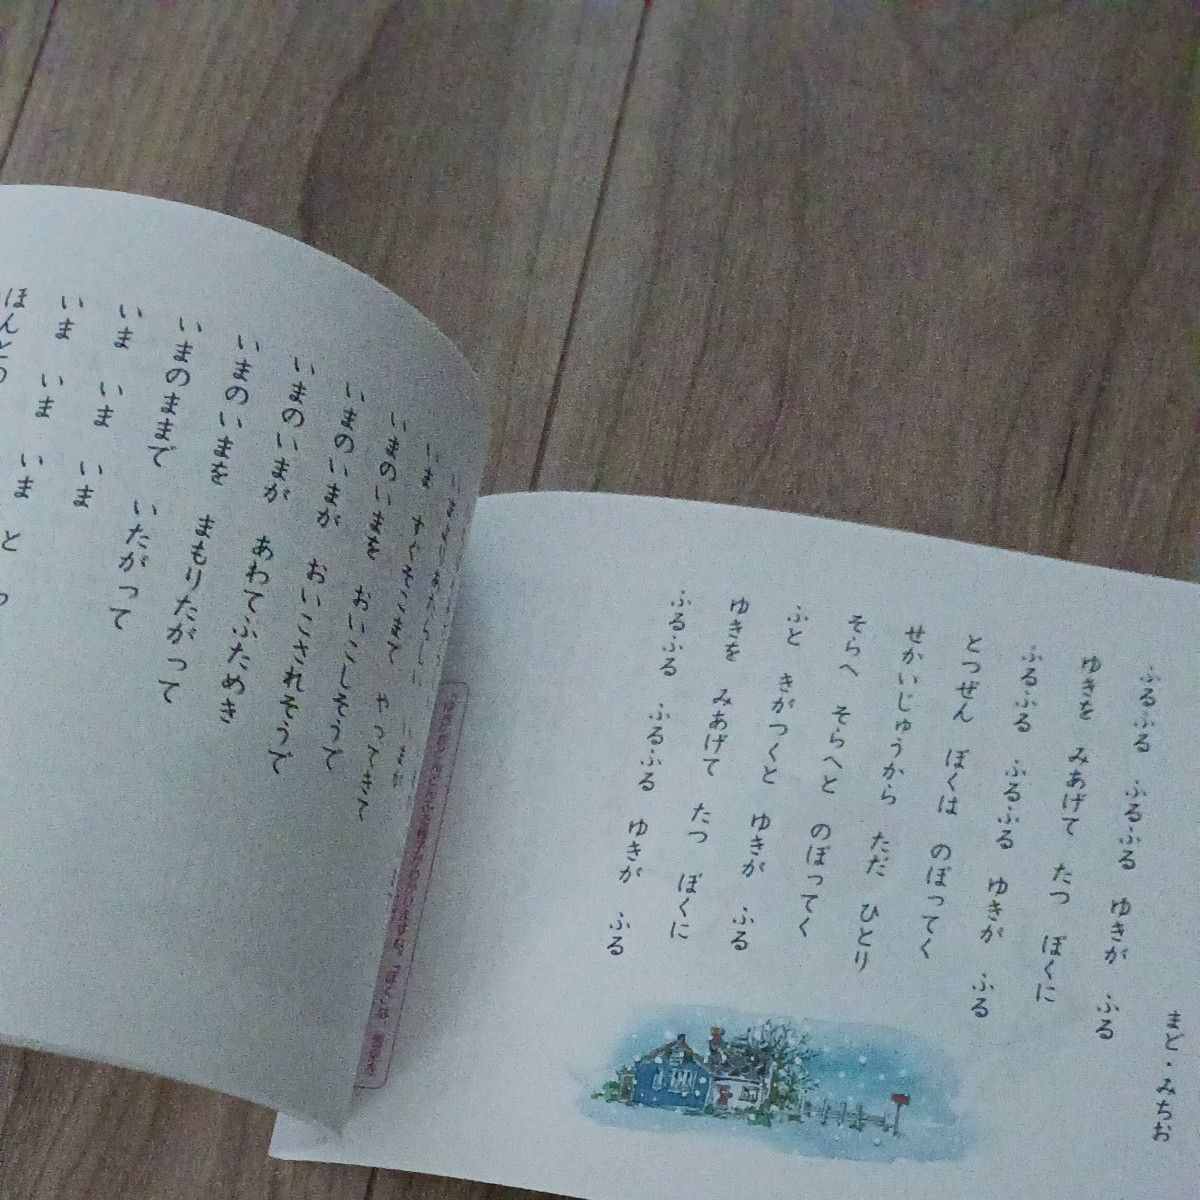 まど・みちお
ふるふる ふるふる ゆきが ふる
ゆきを みあげて たつ ぼくに
ふるふる ふるふる ゆきが ふる
とつぜん ぼくは のぼってく
せかいじゅうから ただ ひとり
そらへ そらへと のぼってく
ふと きがつくと ゆきが ふる
ゆきを みあげて たつ ぼくに
ふるふる ふるふる ゆきが ふる
いま すぐそこまで やってきて
いまのいまを おいこしそうで
いまのいまが おいこされそうで
いまのいまが あわてふためき
いまのいまを まもりたがって
いまのままで いたがって
いま いま いま
いま いま いま